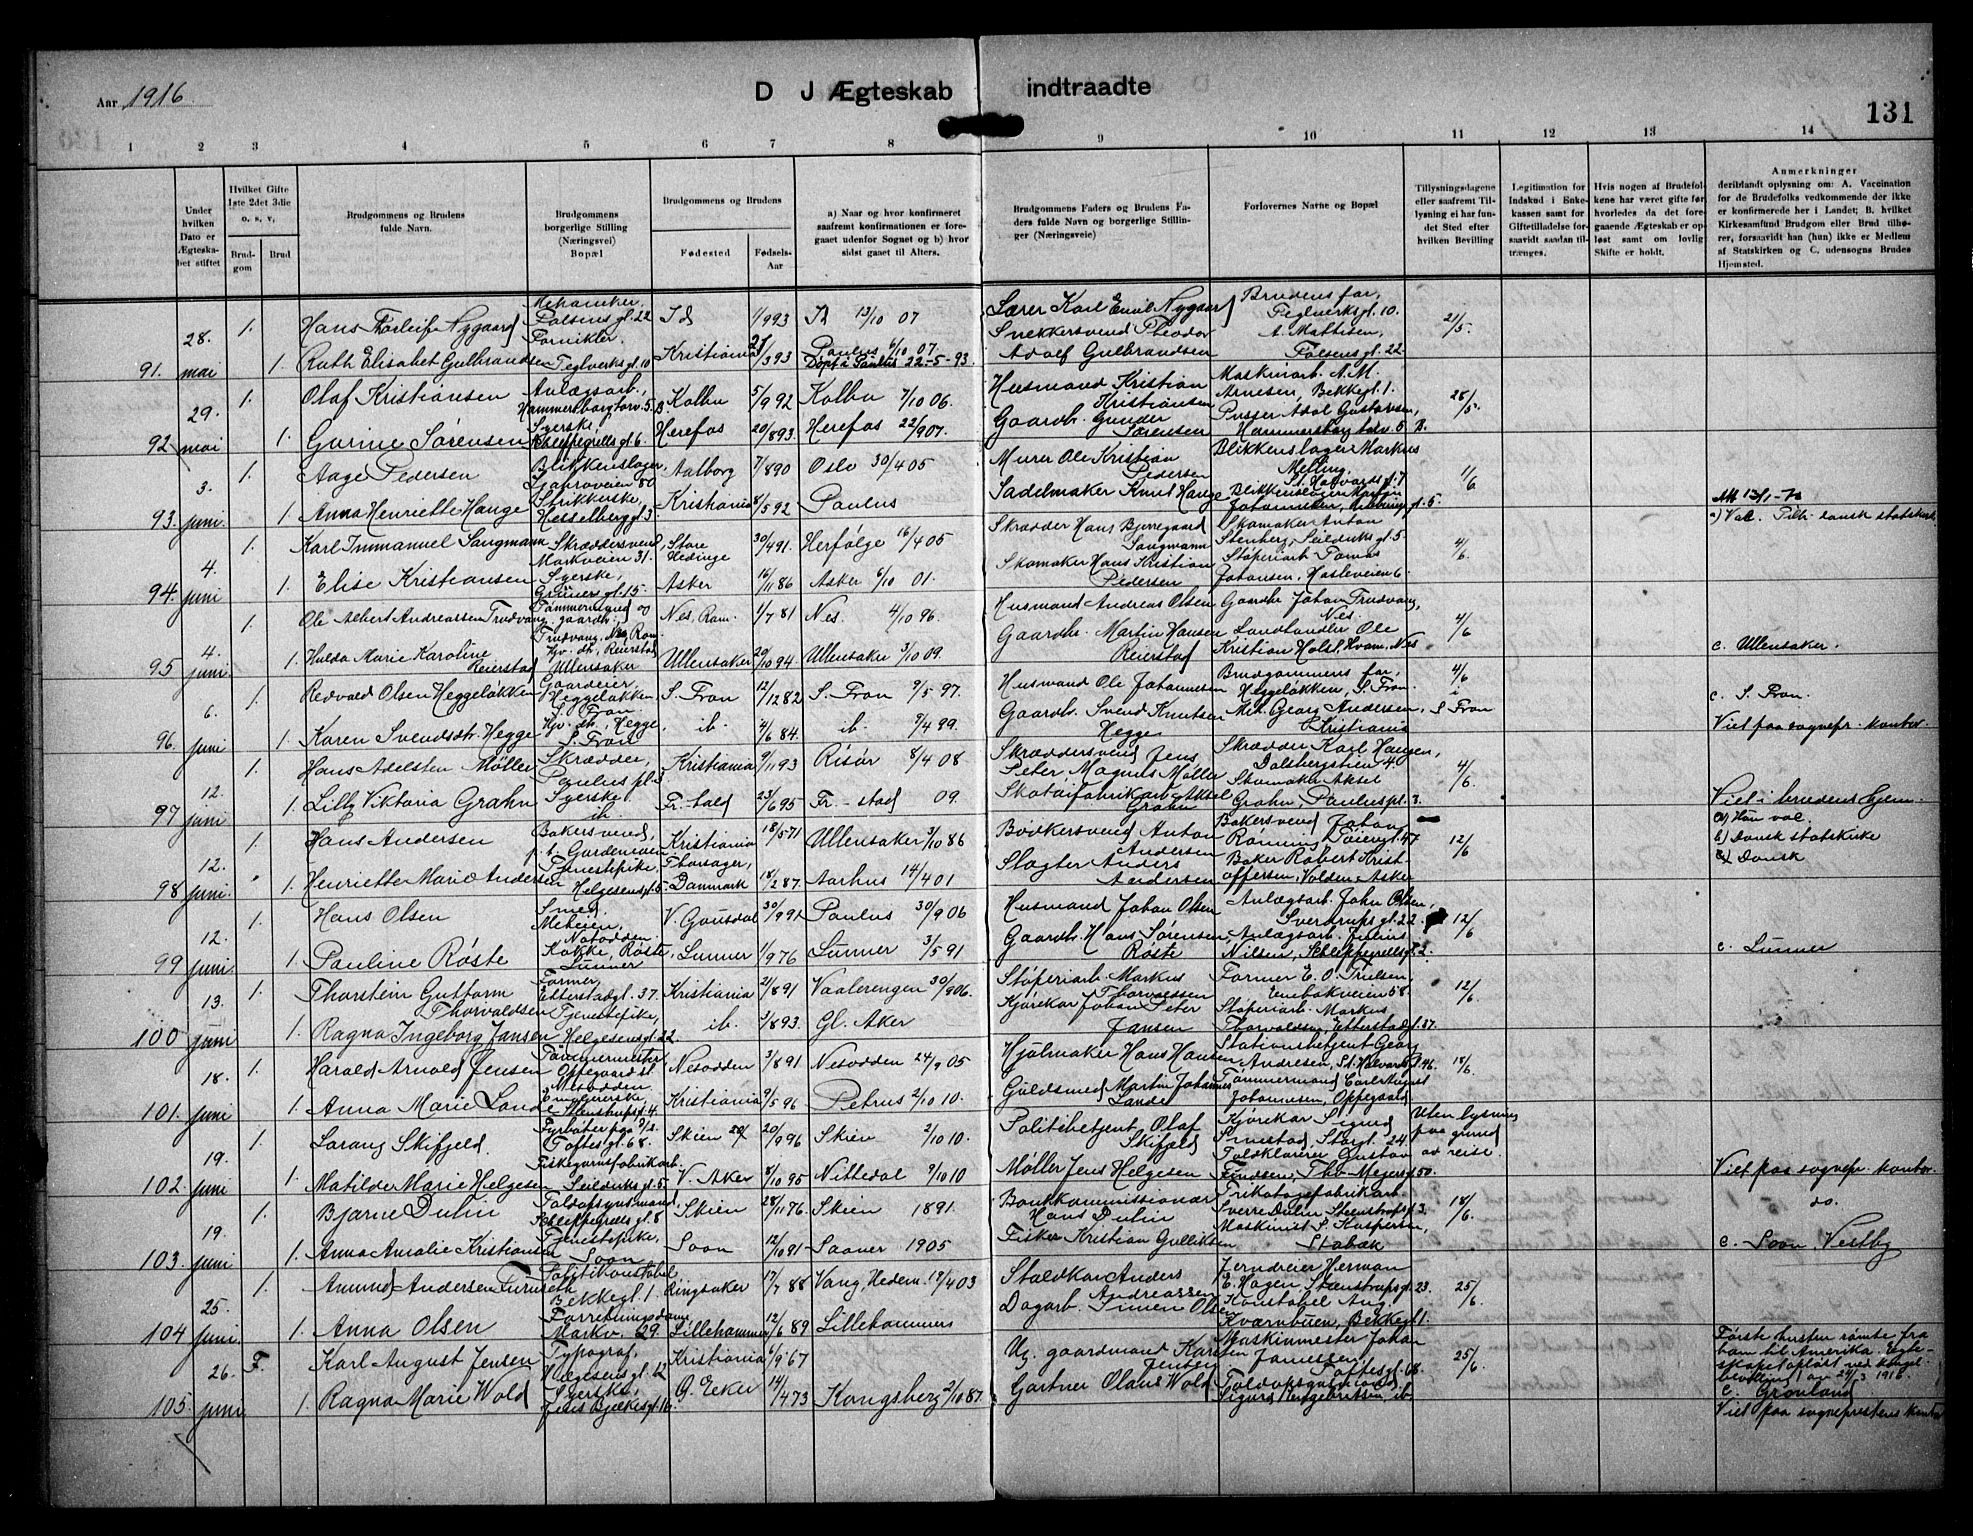 Aar 1916
D J Ægteskab indtraadte
131
1 2 3 4 5 6 7 8 9 10 11 12 13 14
Under hvilken Dato er Ægteskabet stiftet
Hvilket Gifte 1ste 2det 3die o. s. v,
Brudgom
Brud
Brudgommens og Brudens fulde Navn.
Brudgommens borgerlige Stilling (Næringsvei) Bopæl
Brudgommens og Brudens
Fødested
Fødsels-Aar
a) Naar og hvor konfirmeret saafremt konfirmationen er foregaaet udenfor Sognet og b) hvor sidst gaaet til Alters.
Brudgommens Faders og Brudens Faders fulde Navn og borgerlige Stillinger (Næringsveie)
Forlovernes Navne og Bopæl
Tillysningsdagene eller saafremt Tillysning ei har fundet Sted efter hvilken Bevilling
Legitimation for Indskud i Enkekassen samt for Giftetilladelse forsaavidt saadan tiltrænges.
Hvis nogen af Brudefolkene har været gifte før, hvorledes da det foregaaende Ægteskab er opløst samt om lovlig Skifte er holdt.
Anmerkninger deriblandt oplysning om: A. Vaccination for de Brudefolks vedkommende der ikke er konfirmerede her i Landet; B. hvilket Kirkesamfund Brudgom eller Brud tilhører, forsaavidt han (hun) ikke er Medlem af Statskirken og C. udensogns Brudes Hjemsted.
91. 28. mai 1. Hans Torleif Nygaard Mekaniker, Falsens gt. 22 Id 1/9 93 Id 13/10 07 Særer Karl Emil Nygaard Brudens far, Teglverksgt. 10. 21/5.
1. Ruth Elisabet Gulbrandsen Fornikler, Teglverksgt. 10 Kristiania 21/3 93 Paulus 6/10 07 Døpt i Paulus 22-5-93. Snekkersvend Theodor Adolf Gulbrandsen A. Mathisen, Falsens gt. 22.
92 29. mai 1. Olaf Kristiansen Anlægsarb., Hammersborgtorv. 5. B Kolbu 5/9 92 Kolbu 7/10 06. Husmand Kristian Kristiansen Maskinarb. A. M. Arnesen, Bekkegt. 1. 28/5.
1. Gurine Sørensen Syerske, Schleppegrells gt. 6. Herefos 20/8 93. Herefos 22/9 07. Gaardb. Gunder Sørensen Pusser Adol Gustavsen, Hammersborg torv. 5 B.
93. 3. juni. 1. Aage Pedersen Blikkenslager, 80 Aalborg 7/8 90 Oslo 30/4 05 Murer Ole Kristian Pedersen Blikkenslager Markus Melling, St. Halvards gt. 7 1/6
1. Anna Henriette Hauge Strikkerske, Hesselberg gt. 3 Kristiania 8/5 92 Paulus Sadelmaker Knut Hauge Blikkenslager
94 4. juni 1. Karl Immanuel Sangmann Skræddersvend, Markveien 31. Store Hedinge 30/4 91. Herfølge 16/4 05 Skrædder Hans Bjerregaard Sangmann Skomaker Anton Stenberg, Seilduks gt. 5. 4/6. a) Vac. Tilh. dansk statskirke
1. Elise Kristiansen Syerske, Grüners gt. 15. Asker 16/11 86 Asker 6/10 01. Skomaker Hans Kristian Pedersen Støperiarb. Tomas Johansen, Hasleveien 6.
95 4. juni. 1. Ole Albert Andreassen Trudvang Tømmermand og gaardbr., Trudvang, Nes, Rom. Nes, Rom. 1/7 81 Nes. 4/10 96. Husmand Andreas Olsen Gaardbr Johan Trudvang, Nes. 4/6
1. Hulda Marie Karoline Reierstad Gv. dt., Reierstad Ullensaker Ullensaker 29/10 94. Ullensaker 3/10 09. Gaardbr. Martin Hansen Reierstad Landhandler Ole Kristian Holst, Hvam, Nes c. Ullensaker.
96. 6. juni 1. Redvald Olsen Heggeløkken Gaardeier, Heggeløkken, S. Fron. S. Fron 12/12 82 S. Fron 9/5 97. Husmand Ole Johannesen Brudgommens far, Heggeløkken, S. Fron. 4/6 i S Fron c. S. Fron.
1. Karen Svendsdt. Hegge Gv. dt., Hegge, S. Fron ib. 4/6 84. ib. 9/4 99. Gaardb. Svend Knutsen Hegge Mek. Georg Andersen, Kristiania Viet paa sognepr. kontor.
97 12. juni 1. Hans Adelsten Møller Skrædder, Paulus pl. 3 Kristiania 9/11 93 Risør 8/4 08 Skræddersvend Jens Peter Magnus Møller Skrædder Karl Hansen, Dalsbergstien 4. 4/6
1. Lilly Viktoria Grahn Syerske ib Fr.-stad 23/6 95 Fr-stad 09. Skotøifabrikarb. Aksel Grahn Skomaker Aksel Grahn, Pauluspl. 3. Viet i brudens hjem.
98 12. juni. 1. Hans Andersen Bakersvend, p.t. Gardemoen Kristiania 18/5 71 Ullensaker 3/10 86 Bødkersvend Anton Andersen Bakersvend Johan Rønning, Tøiengt. 47 12/6 a) Hun vac. b) Dansk statskirke c) Dansk
1. Henriette Marie Andersen Tjenestepike, Helgesens gt. 5. Thorsager, Danmark 18/2 87. Aarhus 14/4 01 Slagter Anders Andersen Baker Robert Kristoffersen, Volden, Asker
99 12. juni. 1. Hans Olsen Smed, Meheien, Notodden. V. Gausdal 30/9 91 Paulus 30/9 06 Husmand Johan Olsen Anlægsarb. John Olsen, Sverdrups gt. 22. 12/6
1. Pauline Røste Kokke, Røste, Lunner Lunner 1/9 76 Lunner 3/5 91 Gaardb. Hans Sørensen Røste Anlægsarb. Julius Nilsen, Schleppegrells gt. 2. c. Lunner
100 13. juni 1. Thorstein Guttorm Thorvaldsen Former, Etterstadgt. 37. Kristiania 21/8 91 Vaalerengen 30/9 06. Støperiarb. Markus Thorvaldsen Former E. O. Truelsen, Enebakveien 58. 12/6
1. Ragna Ingeborg Jansen Tjenestepike, Helgesens gt. 22 ib. 3/8 93. Gl. Aker Kjørekar Johan Peter Jansen Støperiarb. Markus Thorvaldsen, Etterstadgt. 37.
101. 18. juni 1. Harald Arnold Jensen Tømmermester Oppegaard st. Nesodden Nesodden 3/8 91 Nesodden 24/9 05 Hjulmaker Hans Hansen Stationsbetjent Georg Andresen, St. Halvards gt. 46. 18/6.
1. Anna Marie Lande Stenstrups gt. 4. Kristiania 9/5 96 Petrus 2/10 10. Guldsmed Martin Johannes Lande Tømmermand Carl August Johannesen, Oppegaard
102. 19. juni 1. Sarang Skifjeld. Fyrbøter paa Toftes gt. 68. Skien 20/9 96 Skien 2/10 10. Politibetjent Olaf Skifjeld Kjørekar Sigurd Smestad, Storgt. 24 Uten lysning paa grund av reise.
1. Matilde Marie Helgesen Fiskegarnsfabrikarb. Seilduks gt. 5. V. Aker 8/10 95 Nittedal 9/10 10 Møller Jens Helgesen Toldklarerer Gustav Knudsen, Thv. Meyers gt. 50. Viet paa sognepr. kontor.
103. 19. juni 1. Bjarne Dulin Toldopsynsmand, Schleppegrells gt. 8 Skien 28/11 76 Skien 1891. Bankkommissionær Hans Dulin Trikotagefabrikarb. Sverre Dulin Steenstrups gt. 3. 18/6. do.
1. Anna Amalie Kristiansen Tjenestepike, Soon Soon 12/10 91 Saaner 1905 Fisker Kristian Gulliksen Maskinist S. Kaspersen, Stabæk c. Soon, Vestby
104 25. juni. 1. Amund Andersen Furuseth Politikonstabel Bekkegt. 1. Ringsaker 17/7 88 Vang, Hedem. 19/4 03 Staldkar Anders Andreassen Jerndreier Herman E. Hagen, Steenstrups gt. 23. 25/6
1. Anna Olsen Forretningsdame, Markv. 29. Lillehammer 12/6 89 Lillehammer Dagarb. Simen Olsen Konstabel Aug. Kværnbuen, Bekkegt 1.
105. 26. juni F. Karl August Jensen Typograf, Helgesens gt. 12 Kristiania 6/9 67 Ug. gaardmand Karsten Jensen Maskinmester Johan Jansessen Toftes gt. 68. 25/6. Første hustru rømte fra ham til Amerika. Egteskapet opløst ved kongel. bevilling av 24/3 1916.
1. Ragna Marie Wold Syerske, Jens Bjelkes gt. 16. Ø. Eker 14/4 73 Kongsberg 2/10 87. Gartner Olaus Wold Toldopsynsmand Sigurd Engebretsen, ib c. Grønland
Viet paa sogneprestens kontor